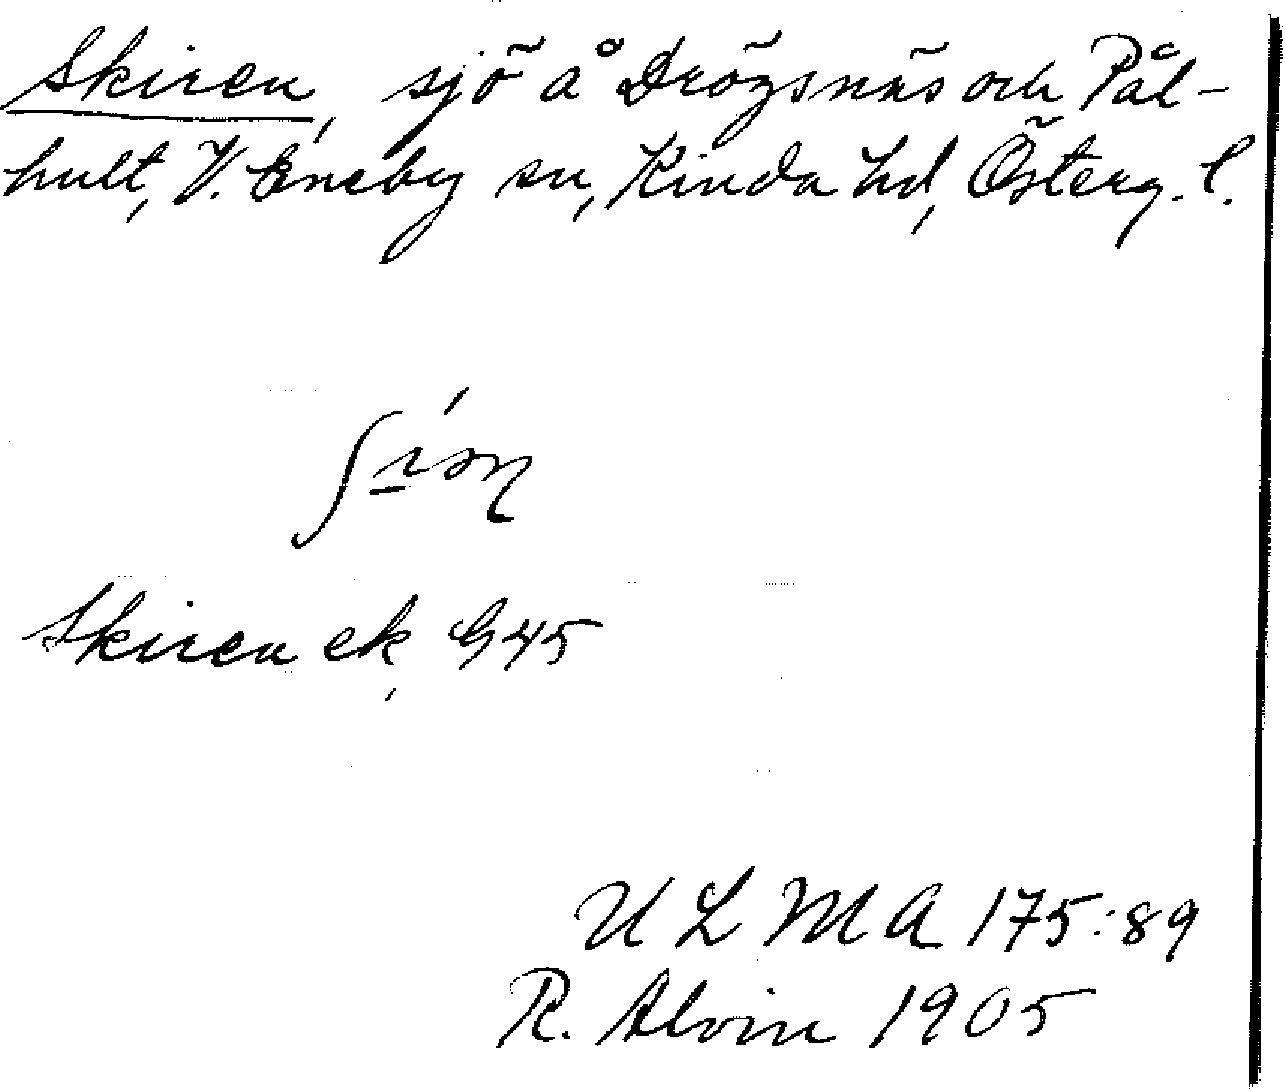 Skiren, sjö å Drögsnäs och Pål-
hult, V. Eneby sn, Kinda hd, Österg. l.
Skiren ek G45
ULMA 175:89
R. Alvin 1905